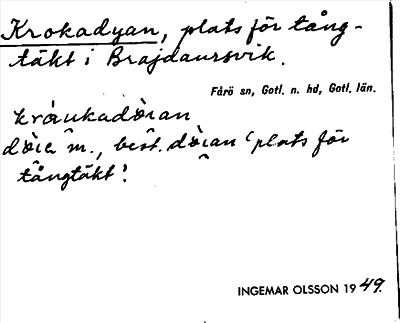 Krokadyan, plats för tång-
täkt i Brajdaursvik.
Fårö sn, Gotl. n. hd, Gotl. län.
m., best. 'plats för
tångtäkt'.
INGEMAR OLSSON 1949.